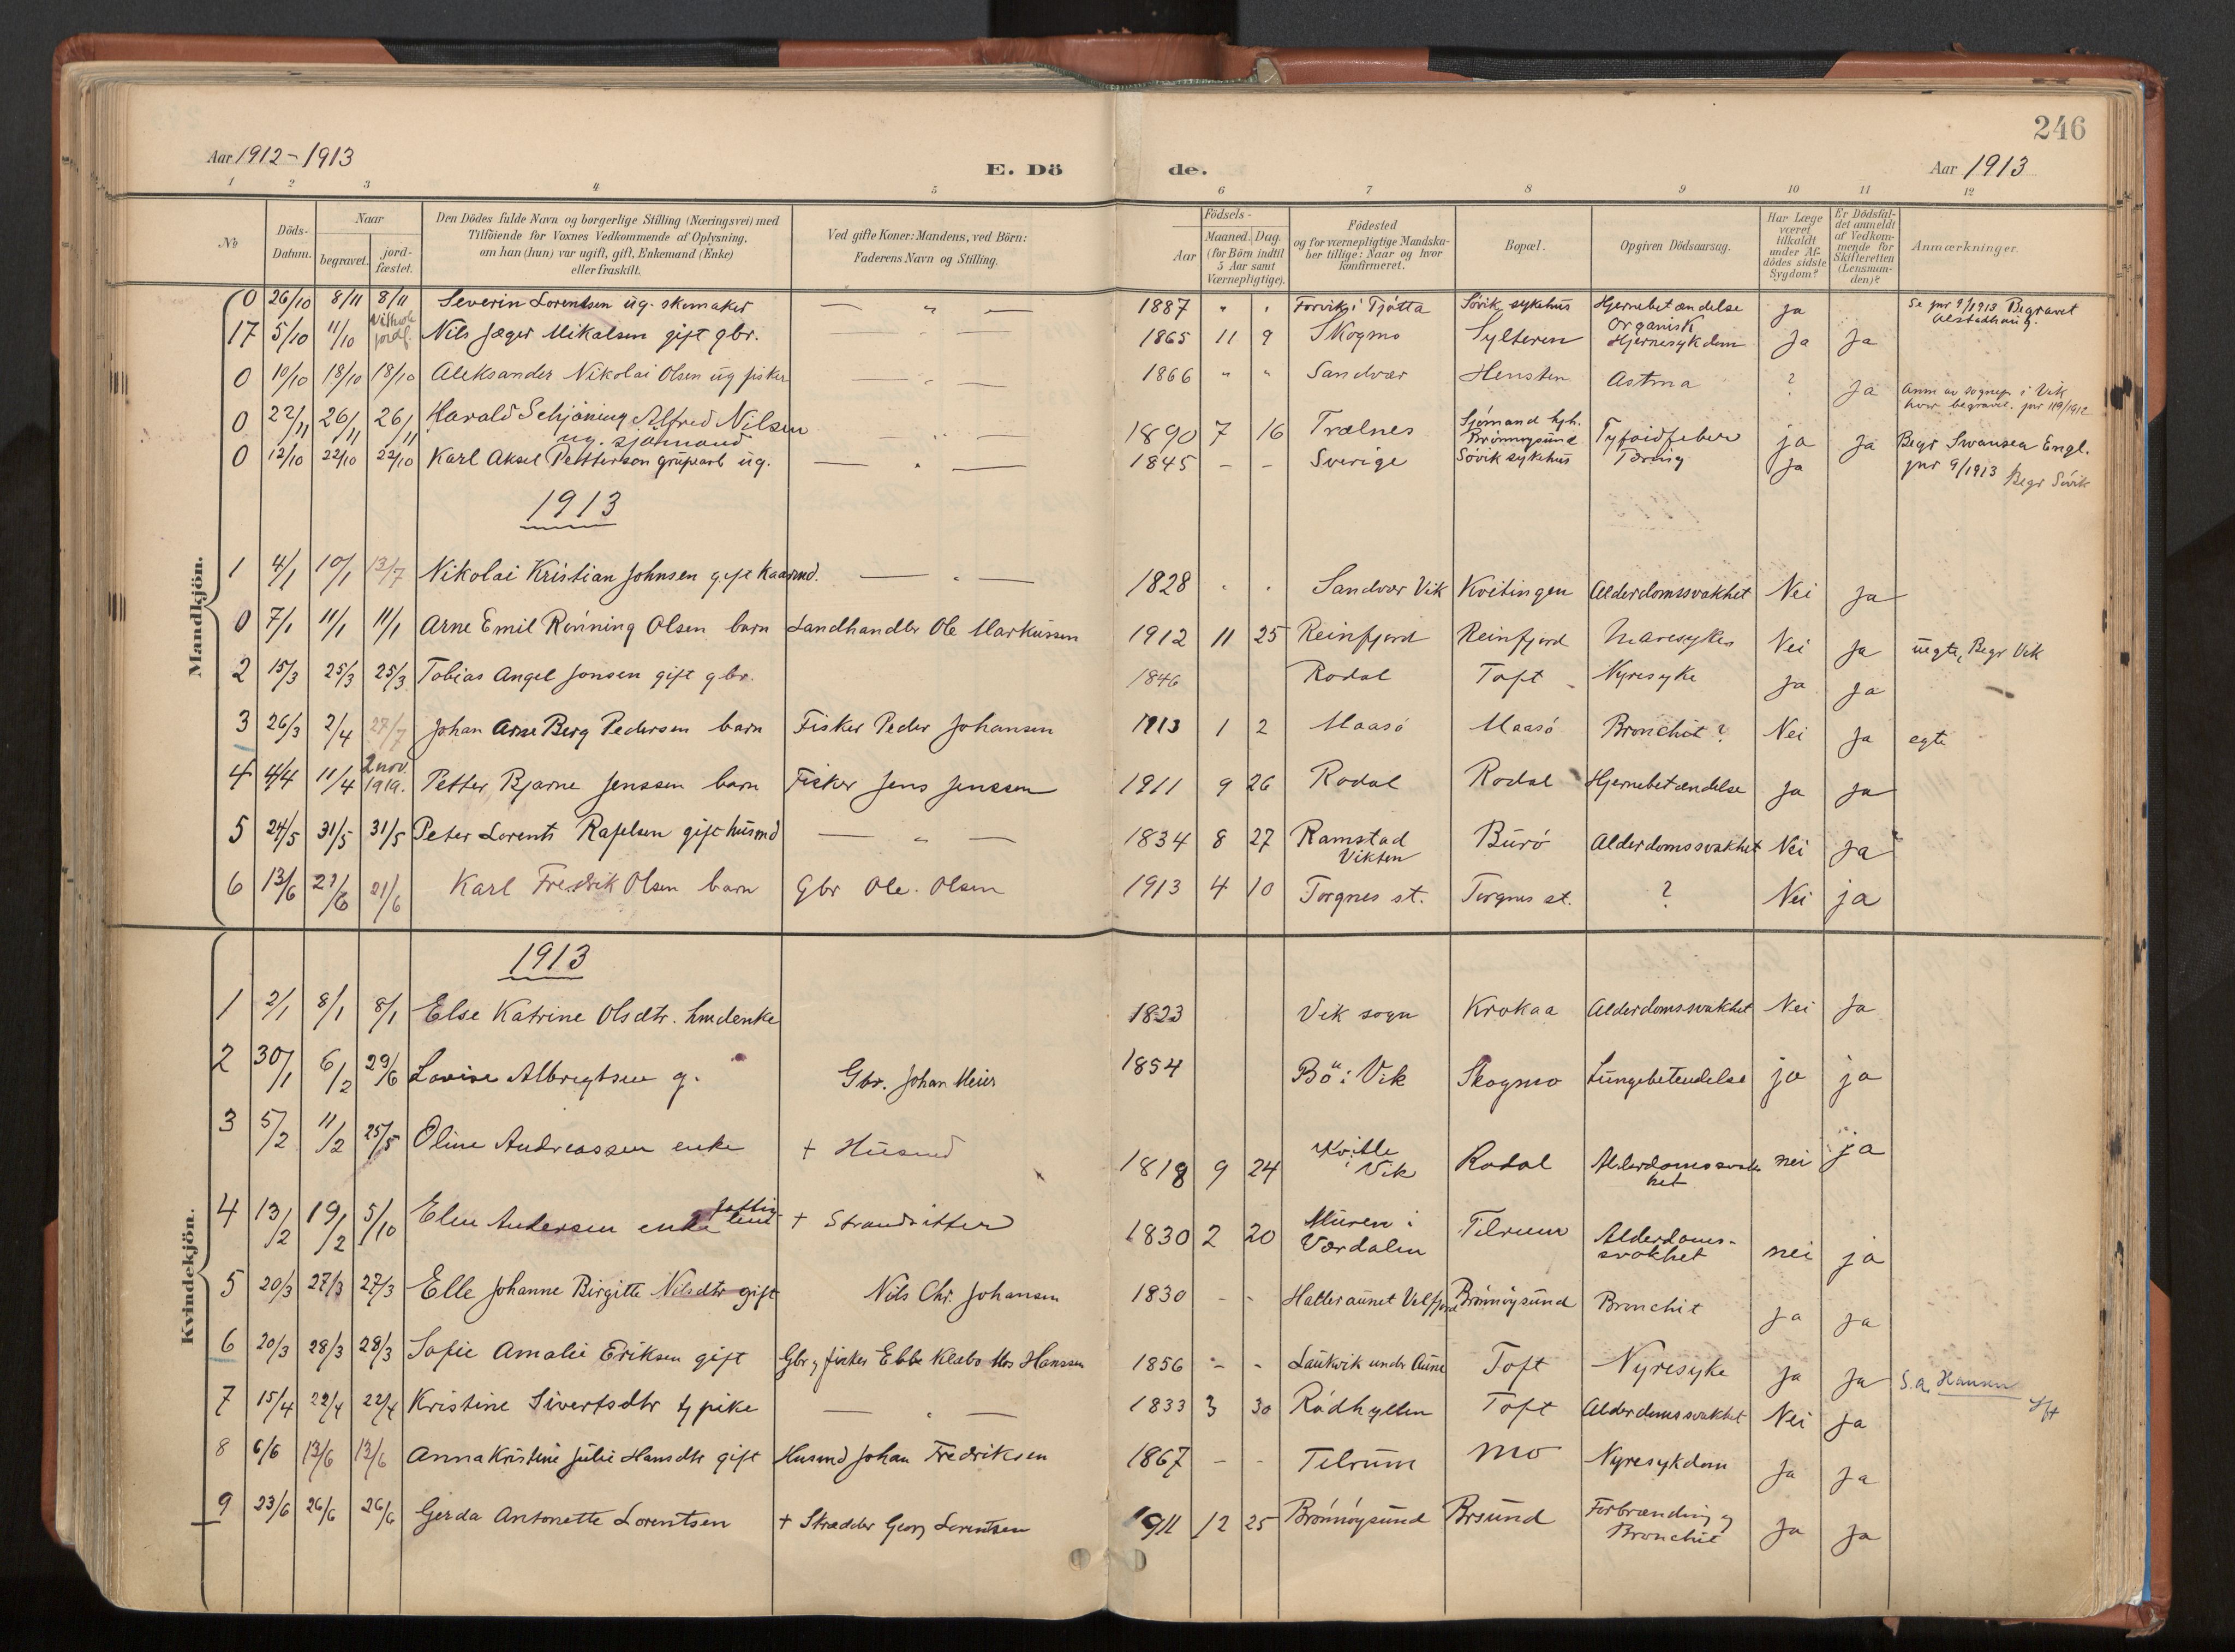 246
Aar 1912-1913
E. Dö
de.
Aar 1913
1 2 3 4 5 6 7 8 9 10 11 12
No
Döds-Datum.
Naar
begravet.
jord-fæstet.
Den Dödes fulde Navn og borgerlige Stilling (Næringsvei) med
Tilföiende for Voxnes Vedkommende af Oplysning,
om han (hun) var ugift, gift, Enkemand (Enke)
eller fraskilt.
Ved gifte Koner: Mandens, ved Börn:
Faderens Navn og Stilling.
Födsels-
Aar
Maaned. Dag.
(for Börn indtil
5 Aar samt
Værnepligtige).
Födested
og for værnepligtige Mandska-
ber tillige: Naar og hvor
konfirmeret.
Bopæl.
Opgiven Dödsaarsag.
Har Læge
været
tilkaldt
under Af-
dödes sidste
Sygdom?
Er Dödsfal-
det anmeldt
af Vedkom-
mende for
Skifteretten
(Lensman-
den)?
Anmærkninger.
Mandkjön.
0 26/10 8/11 8/11 Severin Lorentsen ug. skomaker — " — 1887 " " Forvik i Tjøtta Søvik sykehus Hjernebetændelse ja Se jnr 9/1913 Begravet
Alstadhaug.
17 5/10 11/10 Nils Jæger Mikalsen gift gbr. 1865 11 9 Skogmo Sylteren Organisk
Hjernesykdom Ja Ja
0 10/10 18/10 18/10 Aleksander Nikolai Olsen ug fisker — " — 1866 " " Sandvær Hensten Astma ? Ja Anm av sognep i Vik
hvor begravet. jnr 119/1912
0 22/11 26/11 26/11 Harald Schjøning Alfred Nilsen
ug. sjømand — " — 1890 7 16 Trælnes Sjømand hjh.
Brønnøysund Tyfoidfeber ja Ja Begr Swansea Engl.
0 12/10 22/10 22/10 Karl Aksel Pettterson grubearb ug. — " — 1845 - - Sverige Søvik sykehus Tæring Ja jnr 9/1913 Begr Søvik
1913
1 4/1 10/1 13/7 Nikolai Kristian Johnsen gift kaarmd. — " — 1828 " " Sandvær Vik Kvitingen Alderdomssvakhet Nei Ja
0 7/1 11/1 11/1 Arne Emil Rønning Olsen barn Landhandler Ole Markussen 1912 11 25 Reinfjord Reinfjord Mavesyke Nei Ja uegte, Begr Vik
2 15/3 25/3 25/3 Tobias Angel Jonsen gift gbr. 1846 Rodal Toft Nyresyke Ja Ja
3 26/3 2/4 27/7 Johan Arne Berg Pedersen barn Fisker Peder Johansen 1913 1 2 Maasø Maasø Bronchit ? Nei Ja egte
4 4/4 11/4 2 nov. 1919. Petter Bjarne Jenssen barn Fisker Jens Jenssen 1911 9 26 Rodal Rodal Hjernebetændelse Ja Ja
5 24/5 31/5 31/5 Peter Lorents Rafelsen gift husmd — " — 1834 8 27 Ramstad
Vikten Burø Alderdomssvakhet Nei Ja
6 13/6 21/6 21/6 Karl Fredrik Olsen barn Gbr Ole Olsen 1913 4 10 Torgnes st. Torgnes st. ? Nei ja
Kvindekjön.
1913
1 2/1 8/1 8/1 Else Katrine Olsdtr. hmdenke 1823 Vik sogn Krokaa Alderdomssvakhet Nei Ja
2 30/1 6/2 29/6 Lovise Albrigtsen g. Gbr. Johan Meier 1854 Bø i Vik Skogmo Lungebetendelse ja ja
3 5/2 11/2 25/5 Oline Andreassen enke + Husmd 1818 9 24 Kville
i Vik Rodal Alderdomssvak
het nei ja
4 13/2 19/2 5/10 Elen Andersen enke fattig
lem + Strandsitter 1830 2 20 Muren i
Værdalen Tilrem Alderdoms-
svakhet nei ja
5 20/3 27/3 27/3 Elle Johanne Birgitte Nilsdtr gift Nils Chr. Johansen 1830 - - Hatteraunet Velfjord Brønnøysund Bronchit Ja Ja
6 20/3 28/3 28/3 Sofie Amalie Eriksen gift Gbr og fisker Ebbe Klæbo Mos Hanssen 1856 - - Laukvik under Aune Toft Nyresyke Ja Ja S.a. Hansen
7 15/4 22/4 22/4 Kristine Sivertsdtr tj pike — " — 1833 3 30 Rødhyllen Toft Alderdomssvakhet Nei Ja
8 6/6 13/6 13/6 Anna Kristine Julie Hansdtr gift Husmd Johan Fredriksen 1867 - - Tilrum Mo Nyresykdom Ja Ja
9 23/6 26/6 26/6 Gerda Antonette Lorentsen + Skrædder Georg Lorentsen 1911 12 25 Brønnøysund Brsund Forbrænding og
Bronchit Ja Ja